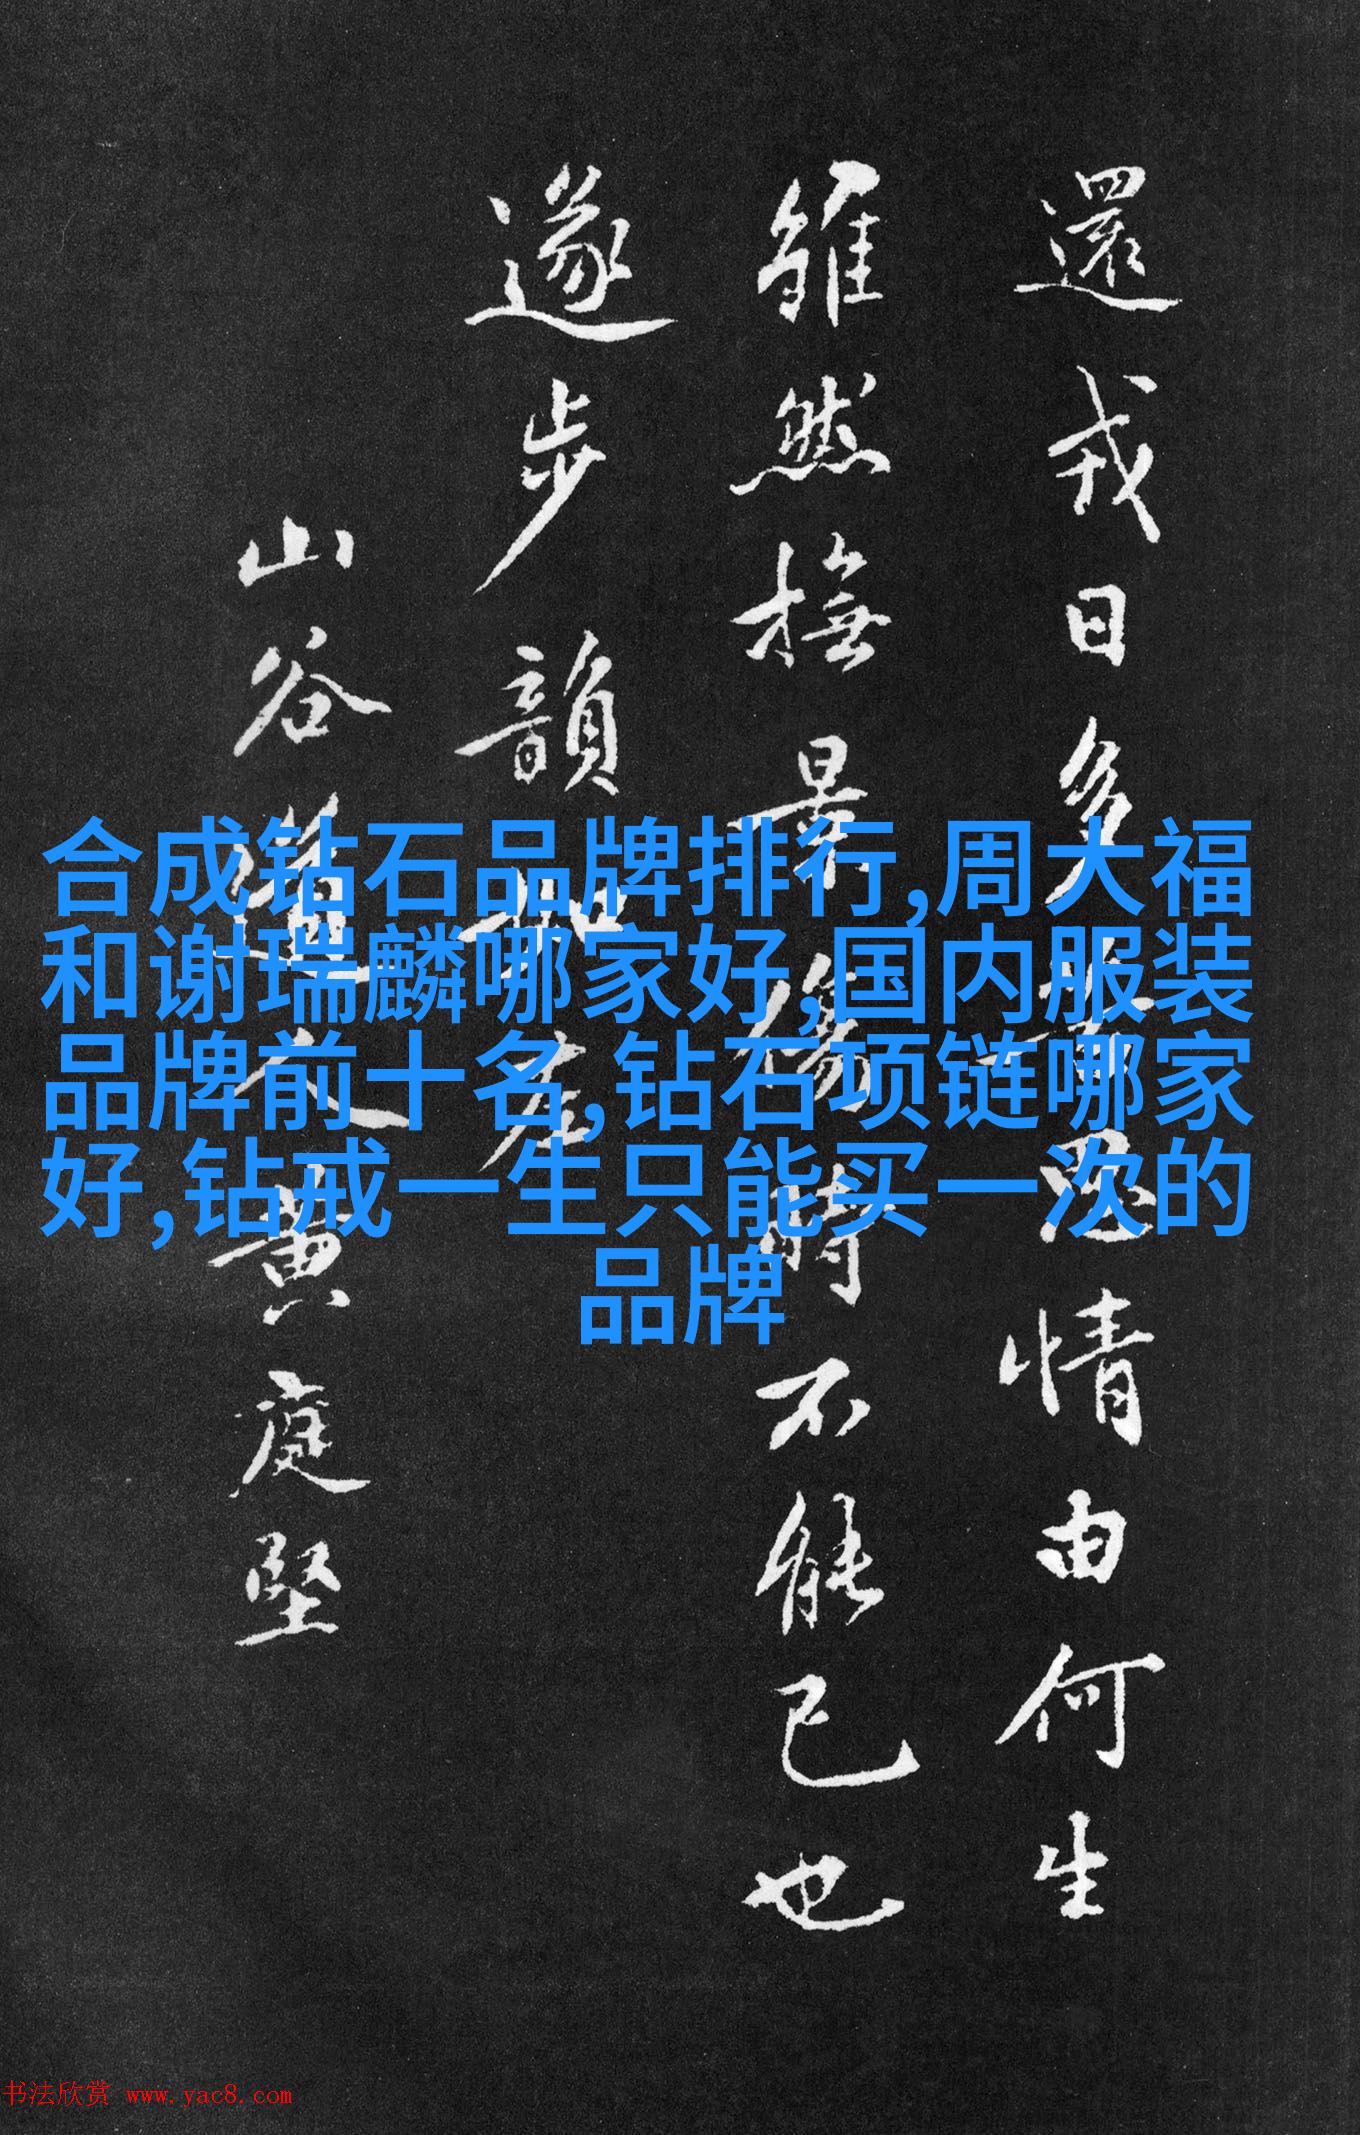 還戎日多思情由何生
雖然撫景傷時不能已也
遂步韻如左
山谷道人黃庭堅
合成钻石品牌排行,周大福
和谢瑞麟哪家好,国内服装
品牌前十名,钻石项链哪家
好,钻戒一生只能买一次的
品牌
书法欣赏 www.yac8.com